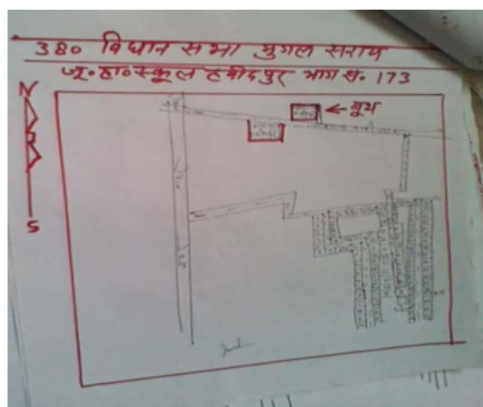 380 विधान सभा मुगल सराय
जू॰ हा॰ स्कूल हमीदपुर भाग सं. 173
N
बूथ
S